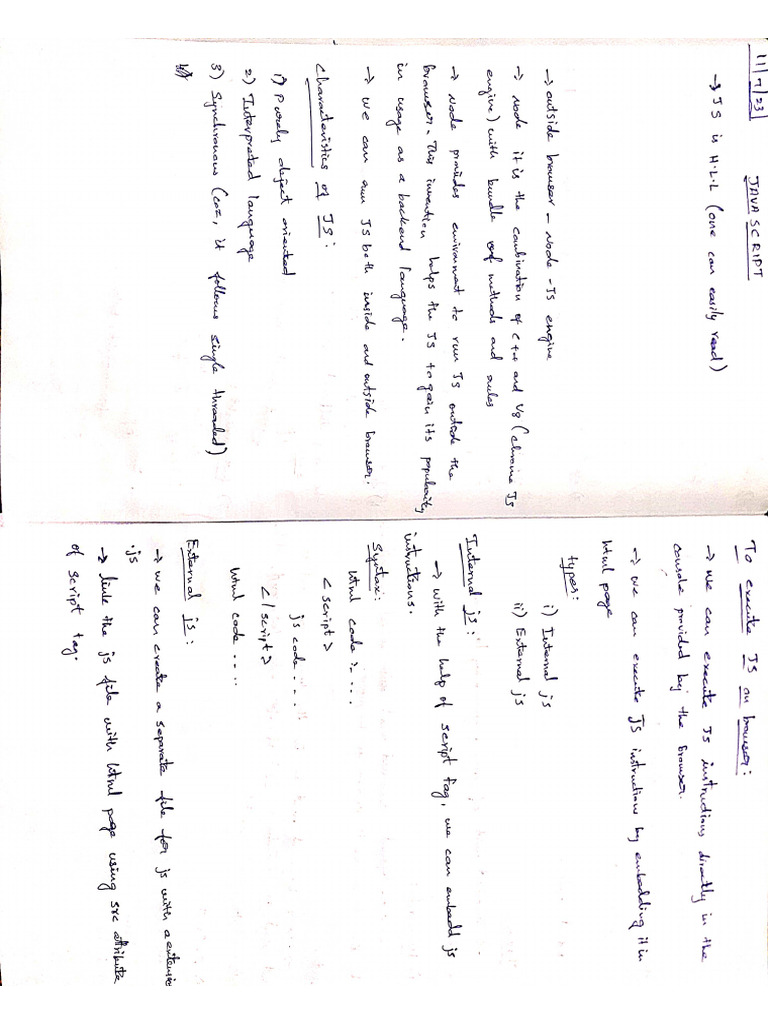 11/7/23
JAVA SCRIPT
→ JS is H.L.L (one can easily read)
→ outside browser - Node - Js engine
→ Node it is the combination of C++ and V8 (chrome JS
engine) with bundle of methods and rules
→ Node provides enviroment to run JS outside the
browser. This invention helps the JS to gain its popularity
in usage as a backend language.
→ we can run JS both inside and outside browser.
Characteristics of JS:
1) Purely object oriented
2) Interpreted language
3) Synchronous (coz, it follows single threaded)
To execute JS on browser:
→ we can execute JS instructions directly in the
console provided by the browser.
→ we can execute JS instructions by embedding it in
html page
types:
i) Internal js
ii) External js
Internal js:
→ with the help of script tag, we can embedd js
instructions.
Syntax:
html code . . . .
<script>
js code . . . .
</script>
html code . . . .
External js:
→ we can create a separate file for js with a extension
.js
→ link the js file with html page using src attribute
of script tag.